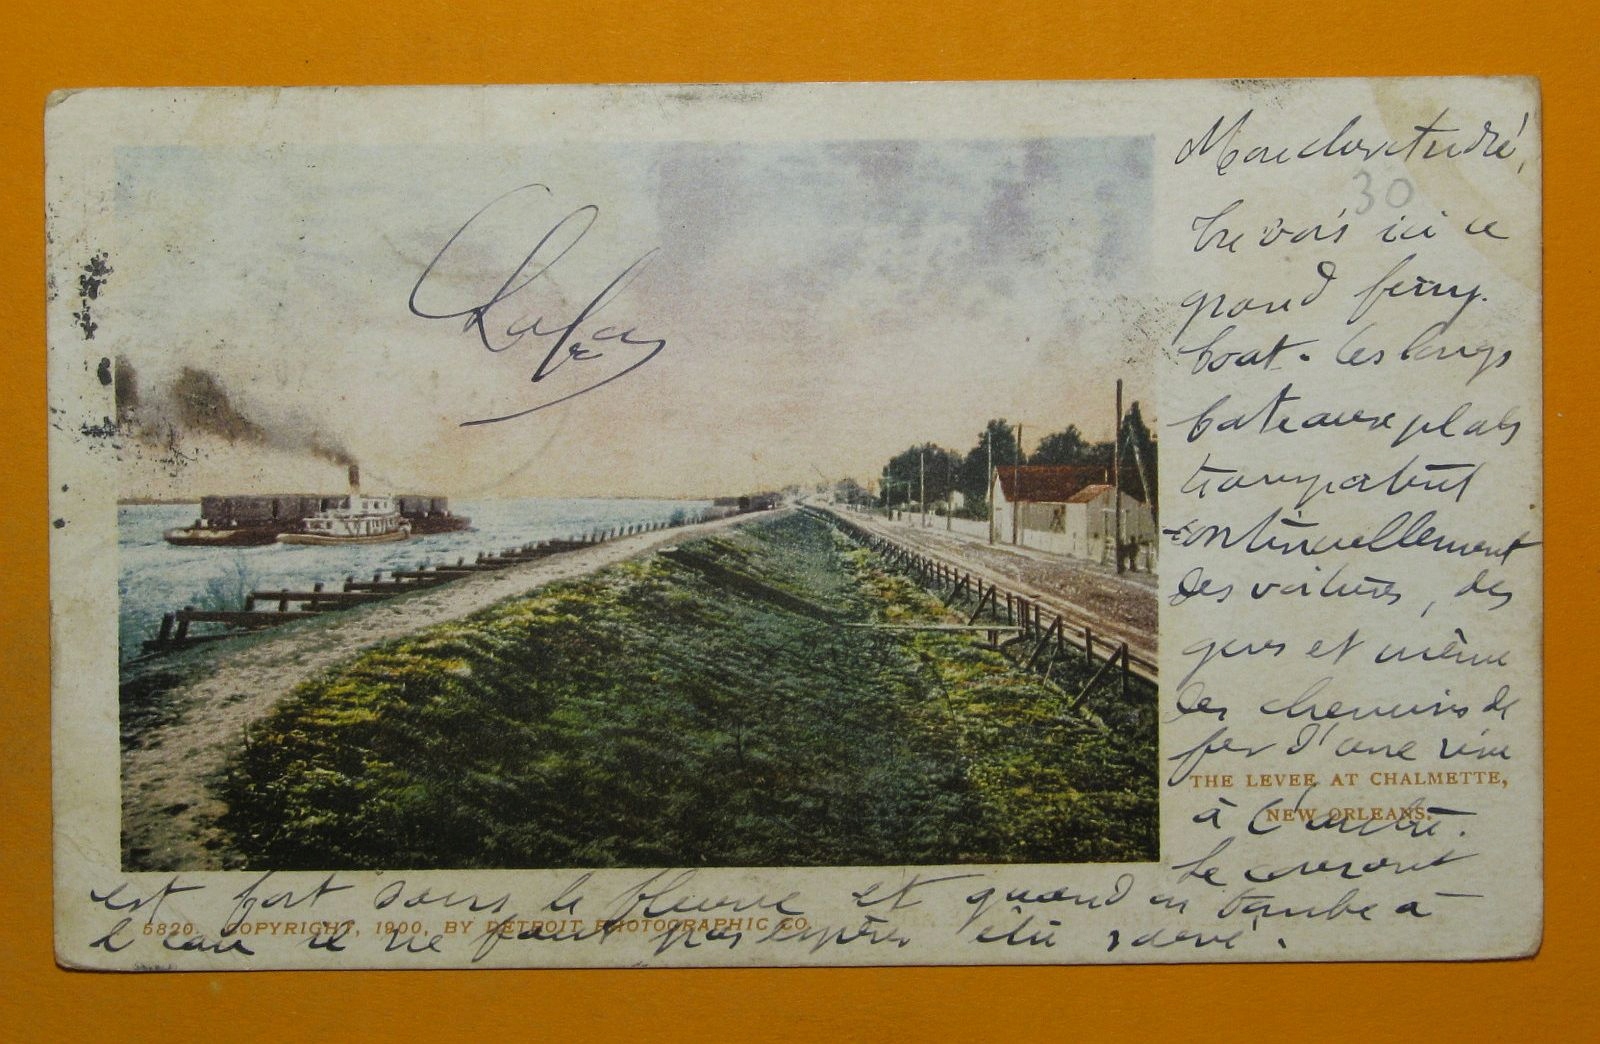 Mon cher André,
30
Tu vois ici ce
grand ferry.
boat. Les longs
bateaux plats
transportent
continuellement
des voitures, des
gens et même
des chemins de
fer d'une rive
THE LEVEE AT CHALMETTE,
NEW ORLEANS.
à l'autre.
Le courant
est fort dans le fleuve et quand on tombe à
5820. COPYRIGHT, 1900, BY DETROIT PHOTOGRAPHIC CO.
l'eau il ne faut pas espérer être sauvé.